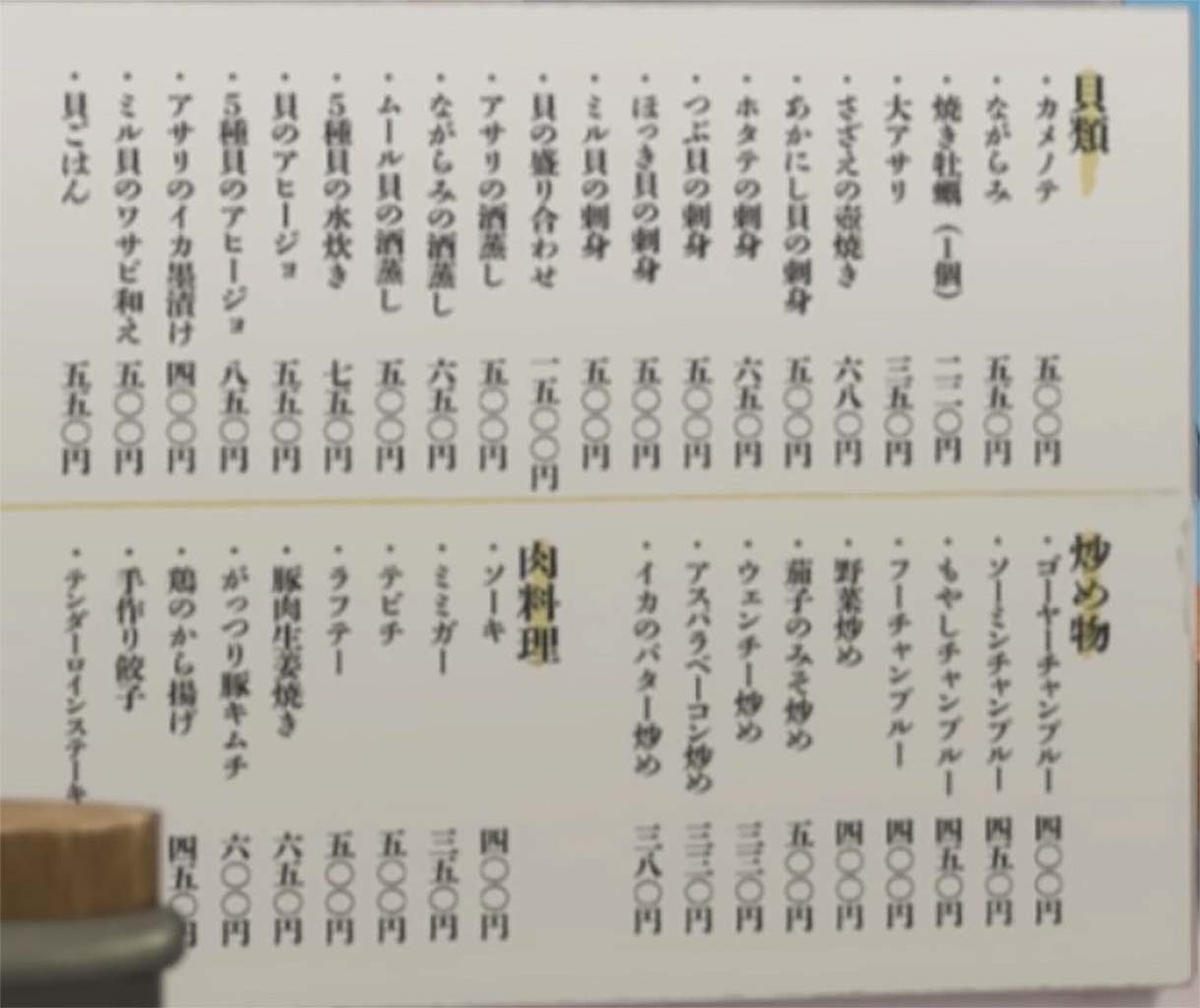 貝類
・カメノテ 五〇〇円
・ながらみ 五五〇円
・焼き牡蠣（1個） 二二〇円
・大アサリ 三五〇円
・さざえの壺焼き 六八〇円
・あかにし貝の刺身 五〇〇円
・ホタテの刺身 六五〇円
・つぶ貝の刺身 五〇〇円
・ほっき貝の刺身 五〇〇円
・ミル貝の刺身 五〇〇円
・貝の盛り合わせ 一五〇〇円
・アサリの酒蒸し 五〇〇円
・ながらみの酒蒸し 六五〇円
・ムール貝の酒蒸し 五〇〇円
・5種貝の水炊き 七五〇円
・貝のアヒージョ 五五〇円
・5種貝のアヒージョ 八五〇円
・アサリのイカ墨漬け 四〇〇円
・ミル貝のワサビ和え 五〇〇円
・貝ごはん 五五〇円
炒め物
・ゴーヤーチャンプルー 四〇〇円
・ソーミンチャンプルー 四五〇円
・もやしチャンプルー 四五〇円
・フーチャンプルー 四〇〇円
・野菜炒め 四〇〇円
・茄子のみそ炒め 五〇〇円
・ウェンチー炒め 三三〇円
・アスパラベーコン炒め 三三〇円
・イカのバター炒め 三八〇円
肉料理
・ソーキ 四〇〇円
・ミミガー 三五〇円
・テビチ 五〇〇円
・ラフテー 五〇〇円
・豚肉生姜焼き 六五〇円
・がっつり豚キムチ 六〇〇円
・鶏のから揚げ 四五〇円
・手作り餃子
・テンダーロインステーキ